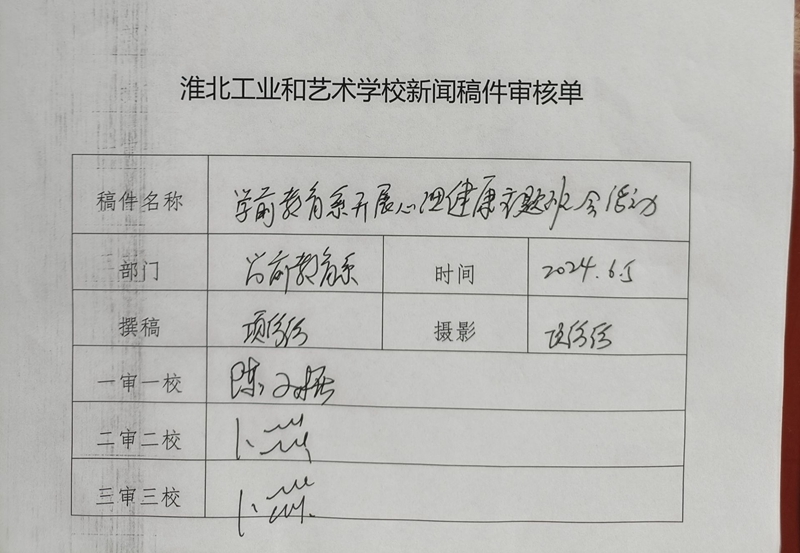 淮北工业和艺术学校新闻稿件审核单
稿件名称 学前教育系开展心理健康主题班会活动
部门 学前教育系 时间 2024.6.5
撰稿 项 摄影
一审一校 陈
二审二校
三审三校